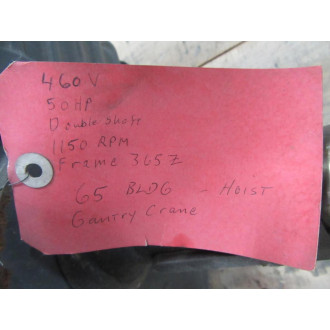 460V
50HP
Double shaft
1150 RPM
Frame 365Z
65 BLDG - HOIST
Gantry Crane